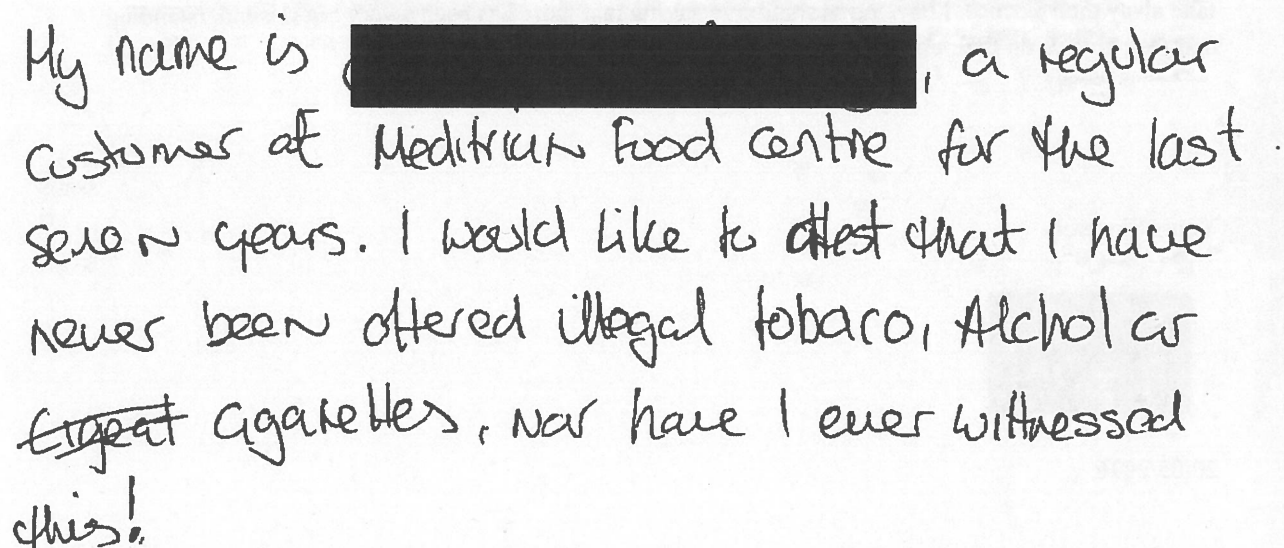 My name is , a regular
customer at Meditrian Food Centre for the last
seven years. I would like to attest that I have
never been offered illegal tobaco, Alchol or
Cigarettes, Nor have I ever witthessed
this!